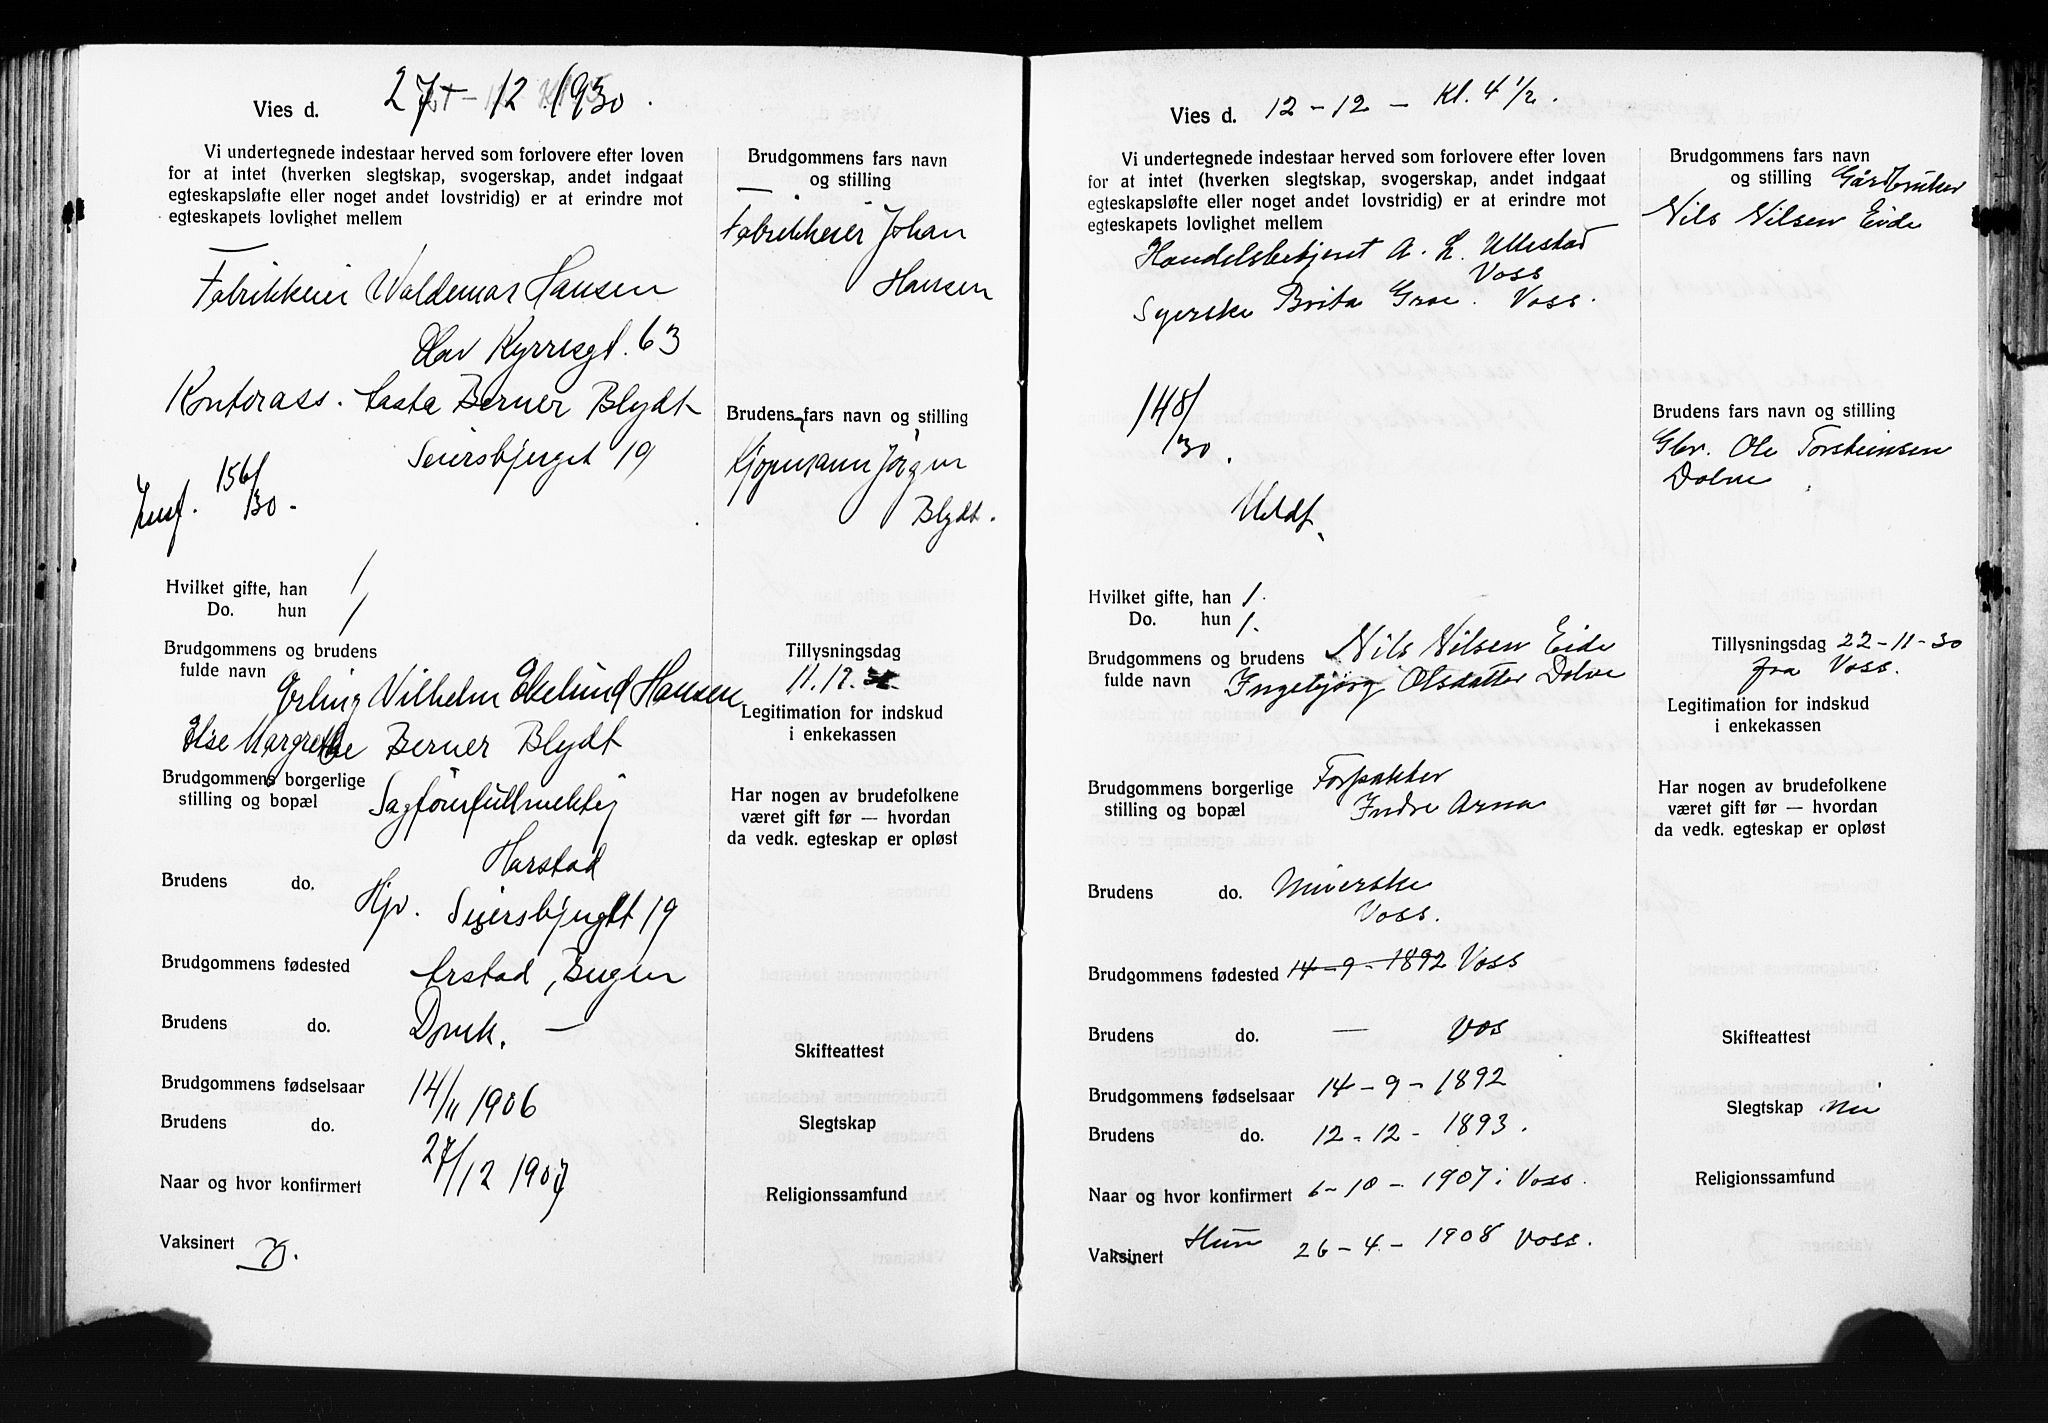 Vies d. 27-12 1930.
Vi undertegnede indestaar herved som forlovere efter loven
for at intet (hverken slegtskap, svogerskap, andet indgaat
egteskapsløfte eller noget andet lovstridig) er at erindre mot
egteskapets lovlighet mellem
Fabrikkeier Waldemar Hansen
Olav Kyrresgt. 63
Kontorass. Aasta Berner Blydt
Seiersbjerget 19
156/30.
Hvilket gifte, han 1
Do. hun 1
Brudgommens og brudens
fulde navn
Erling Vilhelm Ekelund Hansen
Else Margrethe Berner Blydt
Brudgommens borgerlige
stilling og bopæl
Sagførerfullmektig
Harstad
Brudens do. Hjv. Seiersbjerget 19
Brudgommens fødested Årstad, Bergen
Brudens do. Domk. —
Brudgommens fødselsaar 14/11 1906
Brudens do. 27/12 1907
Naar og hvor konfirmert
Vaksinert
Brudgommens fars navn
og stilling
Fabrikkeier Johan
Hansen
Brudens fars navn og stilling
Kjøpmann Jørgen
Blydt.
Tillysningsdag
11.12.
Legitimation for indskud
i enkekassen
Har nogen av brudefolkene
været gift før — hvordan
da vedk. egteskap er opløst
Skifteattest
Slegtskap
Religionssamfund
Vies d. 12-12 - Kl. 4 1/2.
Vi undertegnede indestaar herved som forlovere efter loven
for at intet (hverken slegtskap, svogerskap, andet indgaat
egteskapsløfte eller noget andet lovstridig) er at erindre mot
egteskapets lovlighet mellem
Handelsbetjent A. L. Ullestad
Voss
Syerske Brita Groe. Voss.
148/30.
Meldt.
Hvilket gifte, han 1.
Do. hun 1.
Brudgommens og brudens
fulde navn
Nils Nilsen Eide
Ingebjørg Olsdatter Dolve
Brudgommens borgerlige
stilling og bopæl
Forpakter
Indre Arna
Brudens do.
Voss.
Brudgommens fødested 14-9-1892 Voss
Brudens do. — Vos
Brudgommens fødselsaar 14-9-1892
Brudens do. 12-12-1893.
Naar og hvor konfirmert 6-10-1907 i Voss.
Vaksinert Hun 26-4-1908 Voss.
Brudgommens fars navn
og stilling Gårdbruker
Nils Nilsen Eide
Brudens fars navn og stilling
Gbr. Ole Torsteinsen
Dolve
Tillysningsdag 22-11-30
fra Voss.
Legitimation for indskud
i enkekassen
Har nogen av brudefolkene
været gift før — hvordan
da vedk. egteskap er opløst
Skifteattest
Slegtskap Nei
Religionssamfund